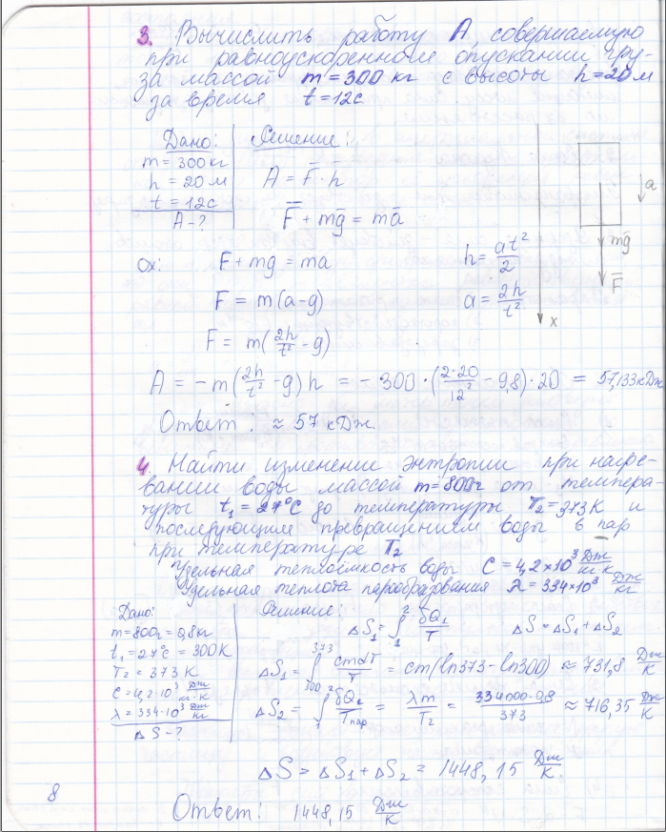 3. Вычислить работу A, совершаемую
при равноускоренном опускании гру-
за массой m = 300 кг с высоты h = 20 м
за время t = 12 с
Дано:
m = 300 кг
h = 20 м
t = 12 с
A - ?
Решение:
A = F̅ · h̅
F̅ + mg̅ = ma̅
ox: F + mg = ma
F = m(a - g)
F = m(2h/t² - g)
h = at²/2
a = 2h/t²
a
mg̅
F̅
x
A = - m(2h/t² - g) h = - 300 · (2·20/12² - 9,8) · 20 = 57,133 кДж
Ответ: ≈ 57 кДж.
4. Найти изменение энтропии при нагре-
вании воды массой m = 800г от темпера-
туры t₁ = 27°C до температуры T₂ = 373 K и
последующим превращением воды в пар
при температуре T₂
Удельная теплоёмкость воды C = 4,2×10³ Дж/кг·К
Удельная теплота парообразования λ = 334×10³ Дж/кг
Дано:
m = 800г = 0,8 кг
t₁ = 27°C = 300 K
T₂ = 373 K
C = 4,2·10³ Дж/кг·К
λ = 334·10³ Дж/кг
ΔS - ?
Решение:
ΔS₁ = ∫₁² δQ₁/T ΔS = ΔS₁ + ΔS₂
ΔS₁ = ∫₃₀₀³⁷³ cmdT/T = cm(ln373 - ln300) ≈ 731,8 Дж/К
ΔS₂ = ∫₁² δQ₂/Tпар = λm/T₂ = 334000·0,8/373 ≈ 716,35 Дж/К
ΔS = ΔS₁ + ΔS₂ = 1448,15 Дж/К.
Ответ: 1448,15 Дж/К
8